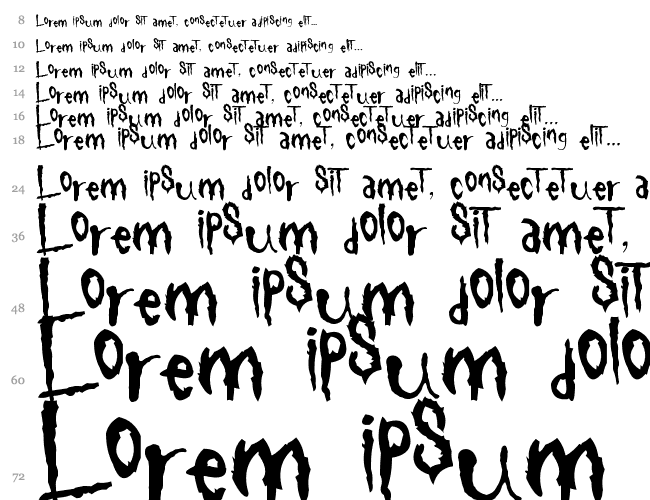 8 Lorem ipsum dolor sit amet, consectetuer adipiscing elit...
10 Lorem ipsum dolor sit amet, consectetuer adipiscing elit...
12 Lorem ipsum dolor sit amet, consectetuer adipiscing elit...
14 Lorem ipsum dolor sit amet, consectetuer adipiscing elit...
16 Lorem ipsum dolor sit amet, consectetuer adipiscing elit...
18 Lorem ipsum dolor sit amet, consectetuer adipiscing elit...
24 Lorem ipsum dolor sit amet, consectetuer a
36 Lorem ipsum dolor sit amet,
48 Lorem ipsum dolor sit
60 Lorem ipsum dolo
72 Lorem ipsum